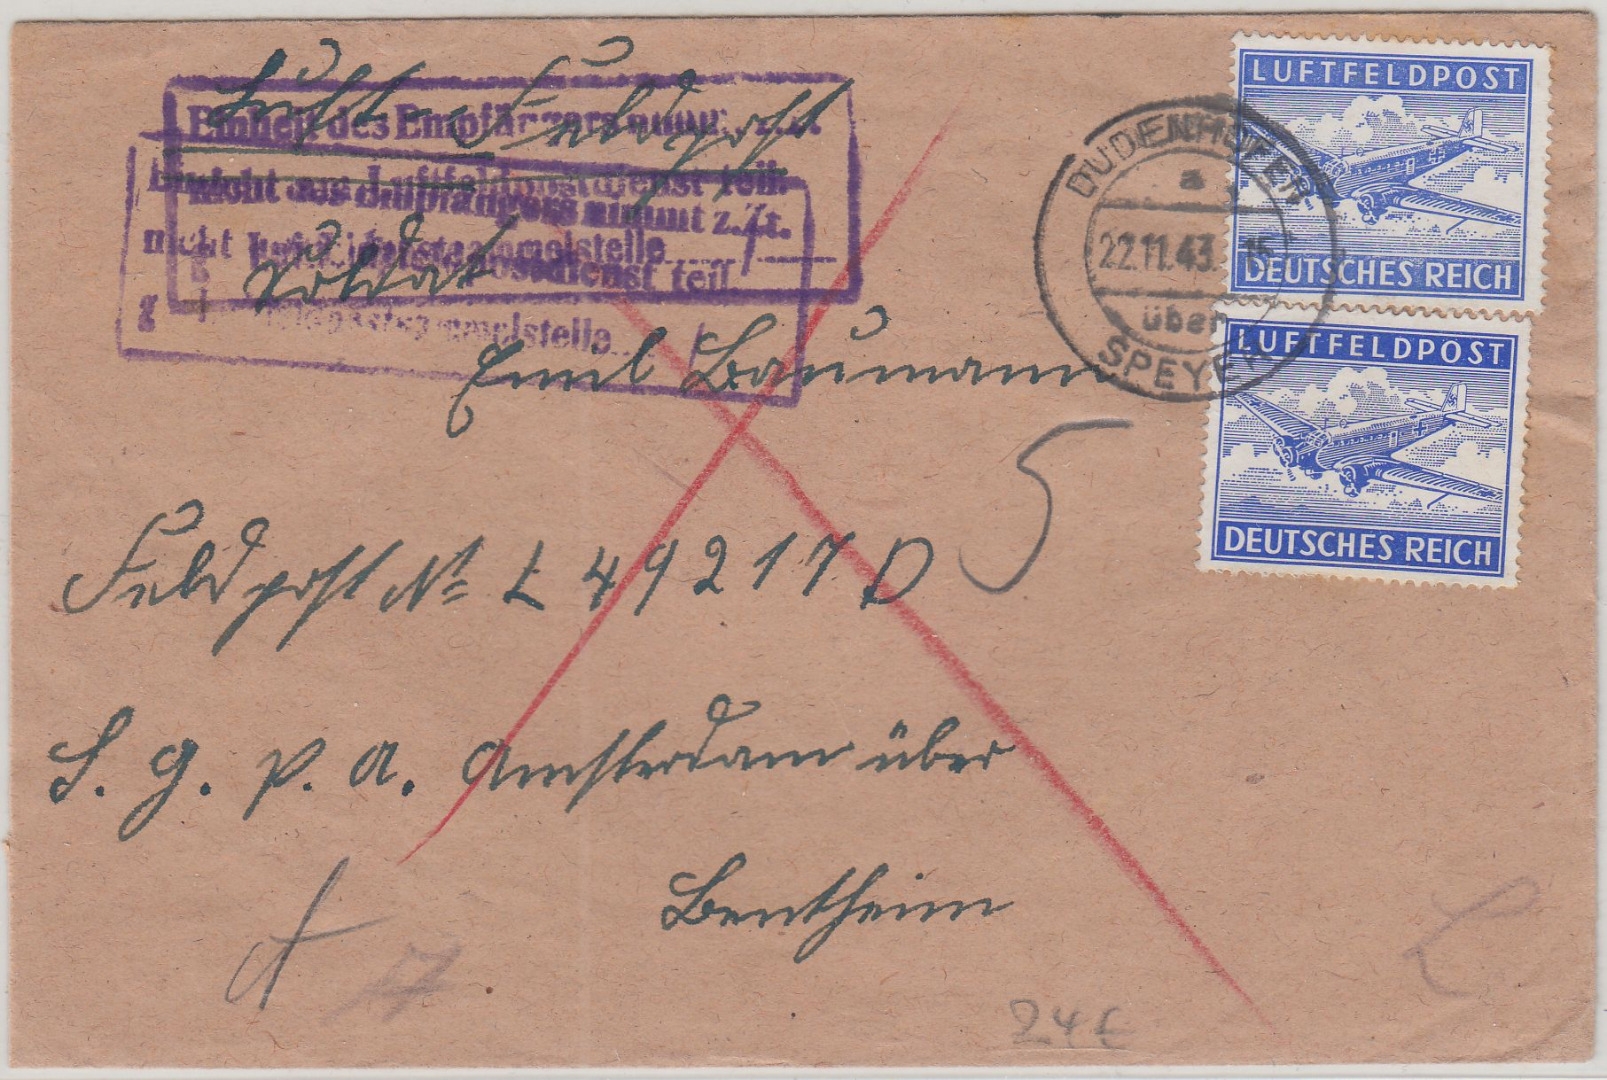 Luft-Feldpost
Einheit des Empfängers nimmt z.Zt.
nicht am Luftfeldpostdienst teil.
Luftfeldpostsammelstelle
Einheit des Empfängers nimmt z.Zt.
nicht am Luftfeldpostdienst teil
Feldpostsammelstelle
Soldat
Emil Baumann
Feldpost Nr L 49217 D
5
L. g. p. a. Amsterdam über
Bentheim
24 €
DUDENHOFEN
a
22.11.43. 15
über
SPEYER
LUFTFELDPOST
DEUTSCHES REICH
LUFTFELDPOST
DEUTSCHES REICH